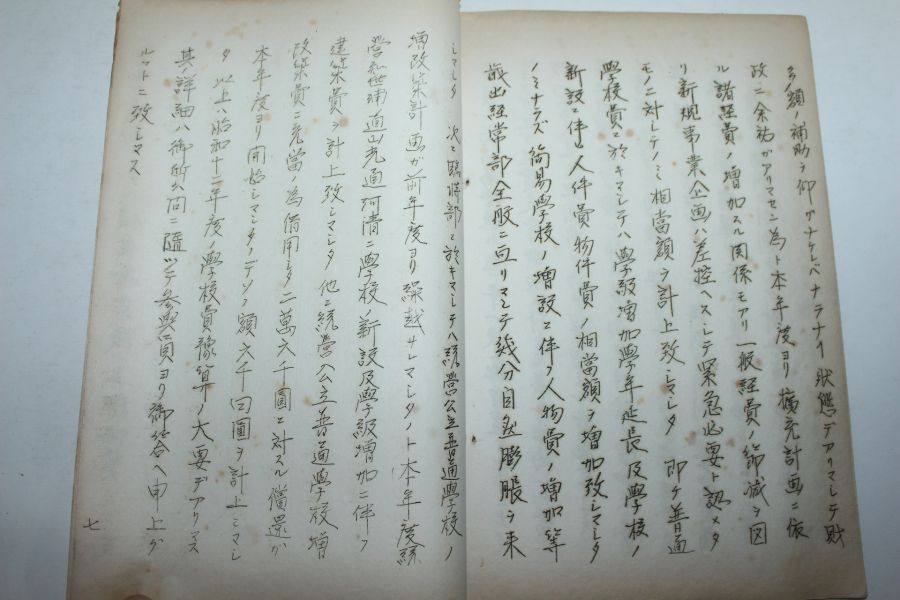 額ノ補助ヲ仰ガナケレバナラナイ狀態デアリマシテ財
政ニ余祐ガアリマセン為ト本年度ヨリ擴充計画ニ依
ル諸経費ノ増加スル関係モアリ一般経費ノ節減ヲ図
リ新規事業企画ハ差控ヘマシテ緊急必要ト認メタ
モノニ対シテノミ相當額ヲ計上致シマシタ 即チ普通
學校費ニ於キマシテハ學級増加學年延長及學校ノ
新設ニ伴ヒ人件費物件費ノ相當額ヲ増加致シマシタ
ノミナラズ簡易學校ノ増設ニ伴フ人物費ノ増加等
歳出経常部全般ニ亘リマシテ幾分自然膨脹ヲ来
シマシタ 次ニ臨時部ニ於キマシテハ統営公立普通學校ノ
増改築計画ガ前年度ヨリ繰越サレマシタノト本年度統
営知世浦道山光道河清ニ學校ノ新設及學級増加ニ伴フ
建築費ヲ計上致シマシタ 他ニ統営公立普通學校増
改築費ニ充當ノ為借用シタ二萬六千圓ニ対スル償還ガ
本年度ヨリ開始シマシタノデソノ額六千圓ヲ計上シマシ
タ 以上ハ昭和十二年度ノ學校費豫算ノ大要デアリマス
其ノ詳細ハ御所問ニ隨ッテ参與員ヨリ御答ヘ申上ゲ
ルコトニ致シマス
七